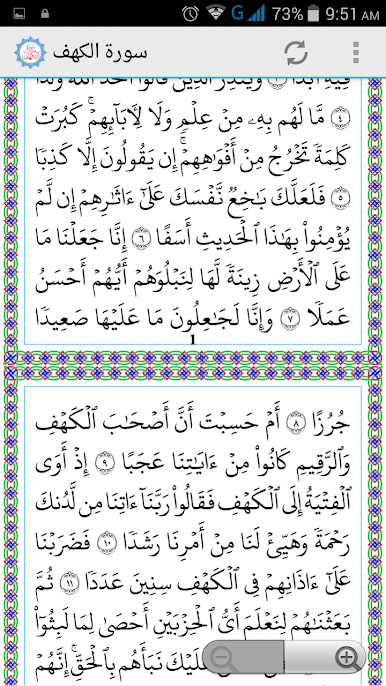 G 73% 9:51 AM
سورة الكهف
فِيهِ أَبَدٗا ٣ وَيُنذِرَ ٱلَّذِينَ قَالُواْ ٱتَّخَذَ ٱللَّهُ وَلَدٗا
٤ مَّا لَهُم بِهِۦ مِنۡ عِلۡمٖ وَلَا لِأٓبَآئِهِمۡۚ كَبُرَتۡ
كَلِمَةٗ تَخۡرُجُ مِنۡ أَفۡوَٰهِهِمۡۚ إِن يَقُولُونَ إِلَّا كَذِبٗا
٥ فَلَعَلَّكَ بَٰخِعٞ نَّفۡسَكَ عَلَىٰٓ ءَاثَٰرِهِمۡ إِن لَّمۡ
يُؤۡمِنُواْ بِهَٰذَا ٱلۡحَدِيثِ أَسَفًا ٦ إِنَّا جَعَلۡنَا مَا
عَلَى ٱلۡأَرۡضِ زِينَةٗ لَّهَا لِنَبۡلُوَهُمۡ أَيُّهُمۡ أَحۡسَنُ
عَمَلٗا ٧ وَإِنَّا لَجَٰعِلُونَ مَا عَلَيۡهَا صَعِيدٗا
1
جُرُزًا ٨ أَمۡ حَسِبۡتَ أَنَّ أَصۡحَٰبَ ٱلۡكَهۡفِ
وَٱلرَّقِيمِ كَانُواْ مِنۡ ءَايَٰتِنَا عَجَبًا ٩ إِذۡ أَوَى
ٱلۡفِتۡيَةُ إِلَى ٱلۡكَهۡفِ فَقَالُواْ رَبَّنَآ ءَاتِنَا مِن لَّدُنكَ
رَحۡمَةٗ وَهَيِّئۡ لَنَا مِنۡ أَمۡرِنَا رَشَدٗا ١٠ فَضَرَبۡنَا
عَلَىٰٓ ءَاذَانِهِمۡ فِي ٱلۡكَهۡفِ سِنِينَ عَدَدٗا ١١ ثُمَّ
بَعَثۡنَٰهُمۡ لِنَعۡلَمَ أَيُّ ٱلۡحِزۡبَيۡنِ أَحۡصَىٰ لِمَا لَبِثُوٓاْ
عَلَيۡكَ نَبَأَهُم بِٱلۡحَقِّۚ إِنَّهُمۡ